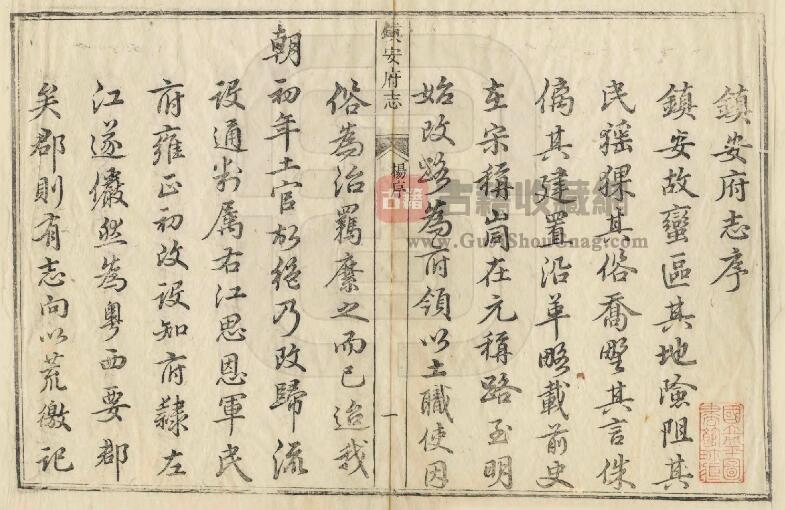 鎮安府志序
鎮安故蠻區其地險阻其
民猺猓其俗喬野其言侏
僞其建置沿革略載前史
在宋稱峝在元稱路至明
始改路為府領以土職使因
鎮安府志
楊序
一
俗為治羈縻之而已迨我
朝初年土官故絕乃改歸流
設通判属右江思恩軍民
府雍正初改設知府隸左
江遂儼然為粤西要郡
矣郡則有志向以荒徼記
古籍
古籍收藏網